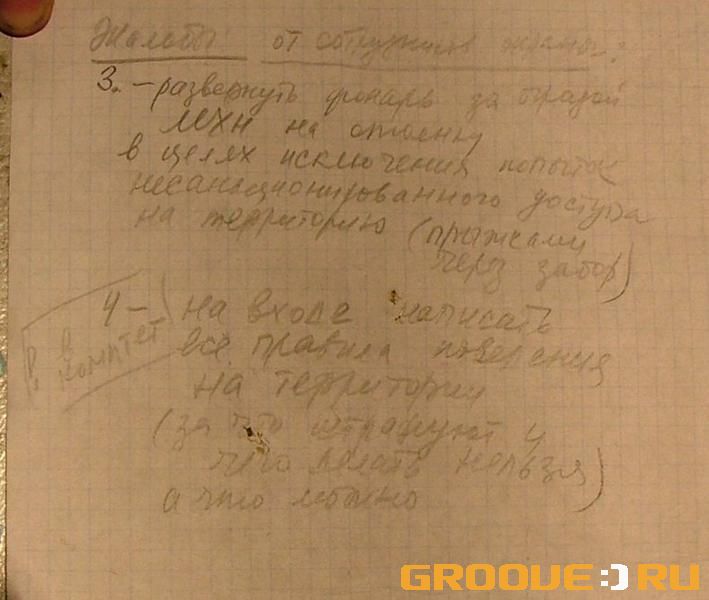 Жалобы от сотрудников охраны:
3. – развернуть фонарь за оградой
МХН на стоянку
в целях исключения попыток
несанкционированного доступа
на территорию (прыжками
через забор)
4 – на входе написать
все правила поведения
на территории
(за что штрафуют и
чего делать нельзя)
а что можно
в комитет
GROOVE:)RU